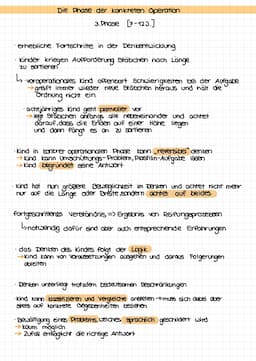 Die Phase der konkreten Operation
3. Phase [7-12J.]
· erhebliche Fortschritte in der Denkentwicklung
· Kinder kriegen Aufforderung Stäbchen nach Länge
zu sortieren?
↳ voroperationales Kind offenbart Schwierigkeiten bei der Aufgabe
→ greift immer wieder neue Stäbchen heraus und hält die
Ordnung nicht ein
· achtjähriges Kind geht planvoller vor
→ legt Stäbchen anfangs alle nebeneinander und achtet
darauf, dass die Enden auf einer Höhe liegen
und dann fängt es an zu sortieren
· Kind in konkret operationalen Phase kann "reversibel" denken
→ Kind kann Umschüttungs-Problem, Plastilin-Aufgabe lösen
→ Kind begründet seine Antwort
· Kind hat nun größere Beweglichkeit im Denken und achtet nicht mehr
nur auf die Länge oder Breite, sondern achtet auf beides
fortgeschrittenes Verständnis ⇒ Ergebnis von Reifungsprozessen
↳ notwendig dafür sind aber auch entsprechende Erfahrungen
· das Denken des Kindes folgt der Logik
→ Kind kann von Voraussetzungen ausgehen und daraus Folgerungen
ableiten
· Denken unterliegt trotzdem bedeutsamen Beschränkungen
Kind kann klassifizieren und Vergleiche anstellen → muss sich dabei aber
stets auf konkrete Gegebenheiten beziehen
· Bewältigung eines Problems, welches sprachlich geschildert wird
→ kaum möglich
→ Zufall ermöglicht die richtige Antwort